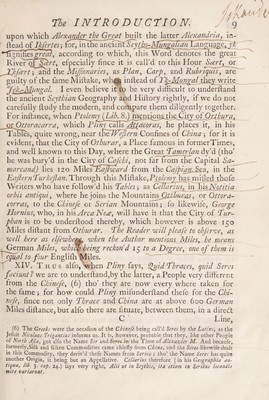 The INTRODUCTION. 9
upon which Alexander the Great built the latter Alexandria, in-
stead of Isfertes; for, in the ancient Scytho-Mungalian Language, jk
signifies great, according to which, this Word denotes the great
River of Saert, especially since it is call'd to this Hour Saert, or
Jhsert; and the Missionaries, as Plan, Carp, and Rubriquis, are
guilty of the same Mistake, when instead of Je-Mungal they write
Jek-Mungal. I even believe it to be very difficult to understand
the ancient Scythian Geography and History rightly, if we do not
carefully study the modern, and compare them diligently together.
For instance, when Ptolemy (Lib. 8.) mentions the City of Octhura,
or Ottoracarra, which Pliny calls he places it, in his
Tables, quite wrong, near the Western Confines of China; for it is
evident, that the City of Othurar, a Place famous in former Times,
and well known to this Day, where the Great Tamerlan dy'd (tho'
he was bury'd in the City of Caschi, not far from the Capital Sa-
marcand) lies 120 Miles Eastward from the Caspian Sea, in the
Eastern Turkistan. Through this Mistake, Ptolemy has misled those
Writers who have follow'd his Tables; as Cellarius, in his Notitia
orbis antiqui, where he joins the Mountains Ottburas, or Ottora-
corras, to the Chinese or Serian Mountains; so likewise, George
Hornius, who, in his Area Noæ, will have it that the City of Tur-
phan is to be understood thereby, which however is above 150
Miles distant from Othurar. The Reader will please to observe, as
well here as elsewhere, when the Author mentions Miles, he means
German Miles, which being reckon'd 15 to a Degree, one of them is
equal to four English Miles.
XIV. THUS also, when Pliny says, Quid Thraces, quid Seres
faciant? we are to understand, by the latter, a People very different
from the Chinese, (6) tho' they are now every where taken for
the same; for how could Pliny misunderstand these for the Chi-
nese, since not only Thrace and China are at above 600 German
Miles distance, but also there are situate, between them, in a direct
C Line,
(6) The Greek were the occasion of the Chinese being call'd Seres by the Latin, as the
Jesuit Nicolaus Trigautius informs us. It is, however, probable that they, like other People
of North Asia, got also the Name Ser and Seres in the Time of Alexander M. And because,
formerly, Silk and silken Commodities came chiefly from China, and the Seres likewise dealt
in this Commodity, they deriv'd these Names from Serica; tho' the Name Seres has quite
another Origin, it being but an Appellative. Cellarius therefore [in his Geographia an-
tiqua, lib. 3. cap. 24.] says very right, Alii ut in Scythis, ita etiam in Seribus locandis
mire variarunt.